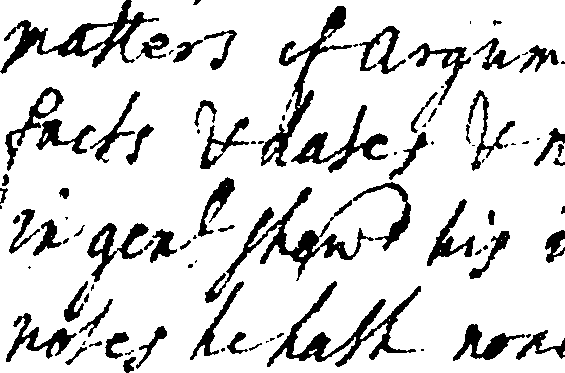 matters of Argum
facts & dates & n
in genl shewd his i
notes he hath none